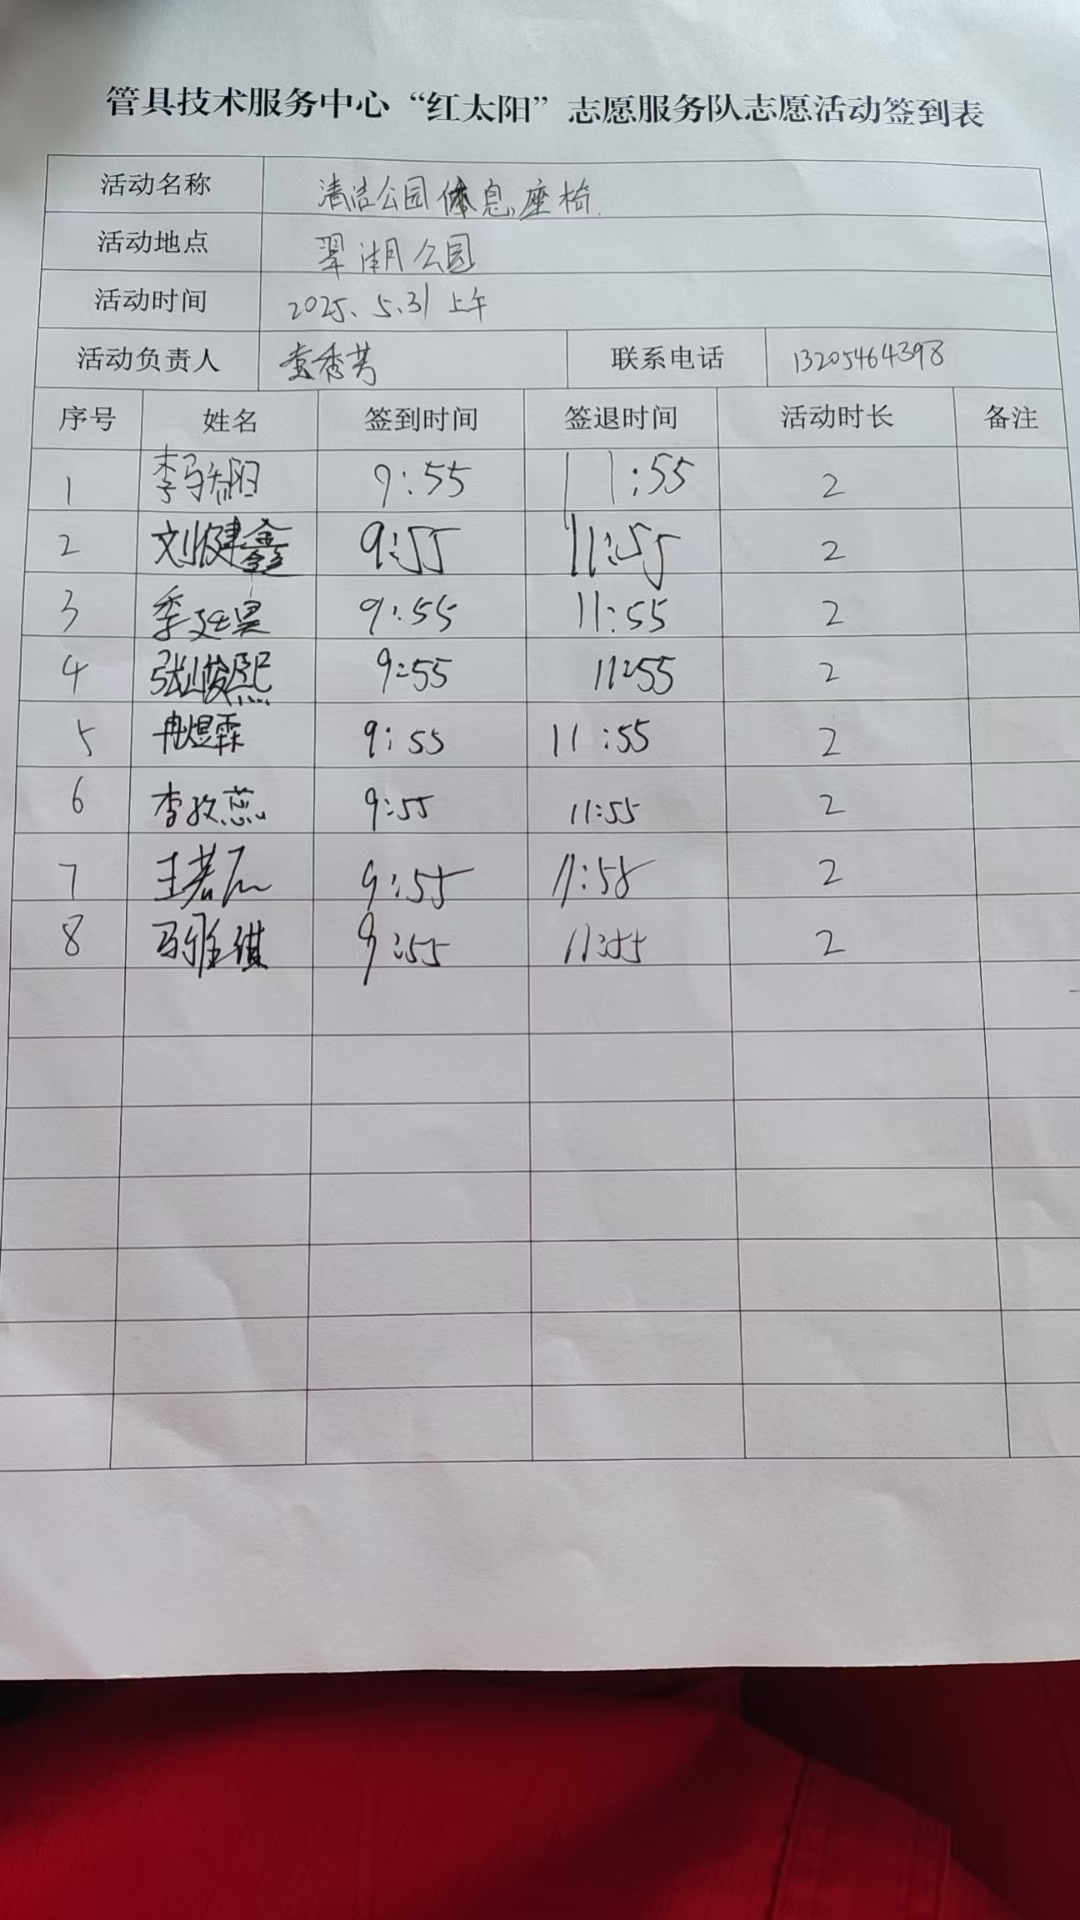 管具技术服务中心“红太阳”志愿服务队志愿活动签到表
活动名称 清洁公园休息座椅.
活动地点 翠湖公园
活动时间 2025.5.31 上午
活动负责人 秀芳 联系电话 13205464398
序号 姓名 签到时间 签退时间 活动时长 备注
1 李 9:55 11:55 2
2 刘健鑫 9:55 11:55 2
3 季延昊 9:55 11:55 2
4 张峻熙 9:55 11:55 2
5 冉煜霖 9:55 11:55 2
6 李孜蕊 9:55 11:55 2
7 王若 9:55 11:58 2
8 马雅琪 9:55 11:55 2